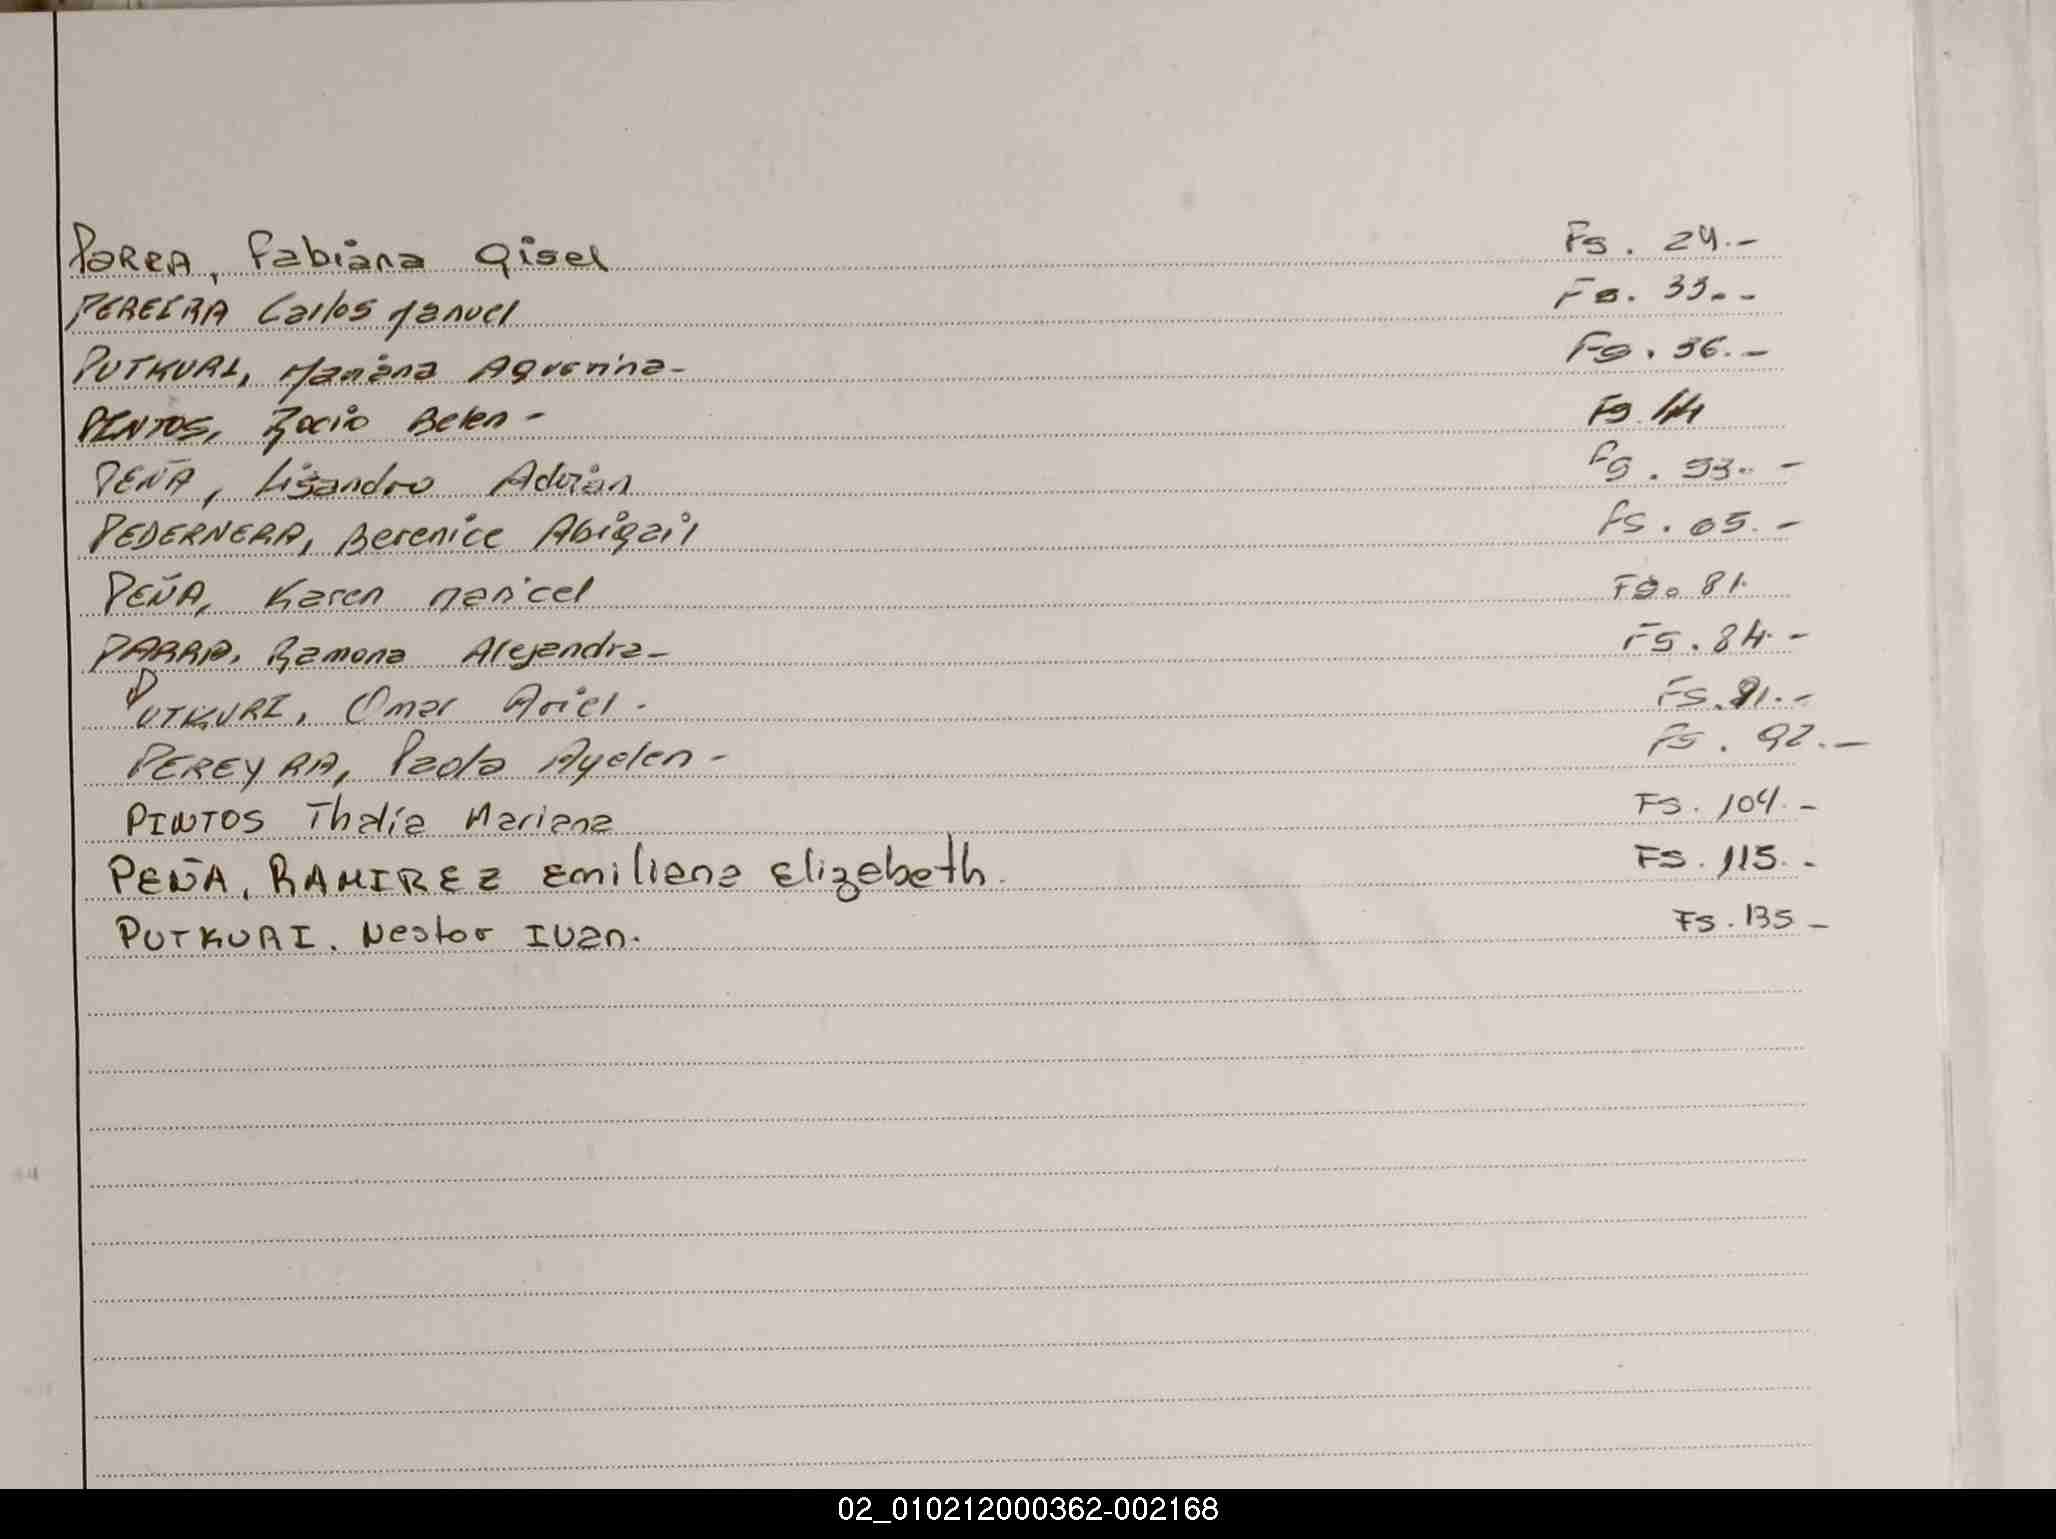 PaRRA, Fabiana Gisel Fs. 24.-
PEREIRA Carlos Manuel Fs. 33.-
PUTKURI, Mariana Agustina- Fs. 36.-
PINTOS, Rocio Belen- Fs. 44
PEÑA, Lisandro Adrián Fs. 53.-
PEDERNERA, Berenice Abigail Fs. 65.-
PEÑA, Karen Maricel Fs. 81.
PARRA, Ramona Alejandra- Fs. 84.-
PUTKURI, Omar Ariel.- Fs. 91.-
PEREYRA, Paola Ayelen- Fs. 92.-
PINTOS Thalía Mariana Fs. 104.-
PEÑA, RAMIREZ Emiliana Elizabeth. Fs. 115.-
PUTKURI. Nestor Ivan. Fs. 135-
02_010212000362-002168